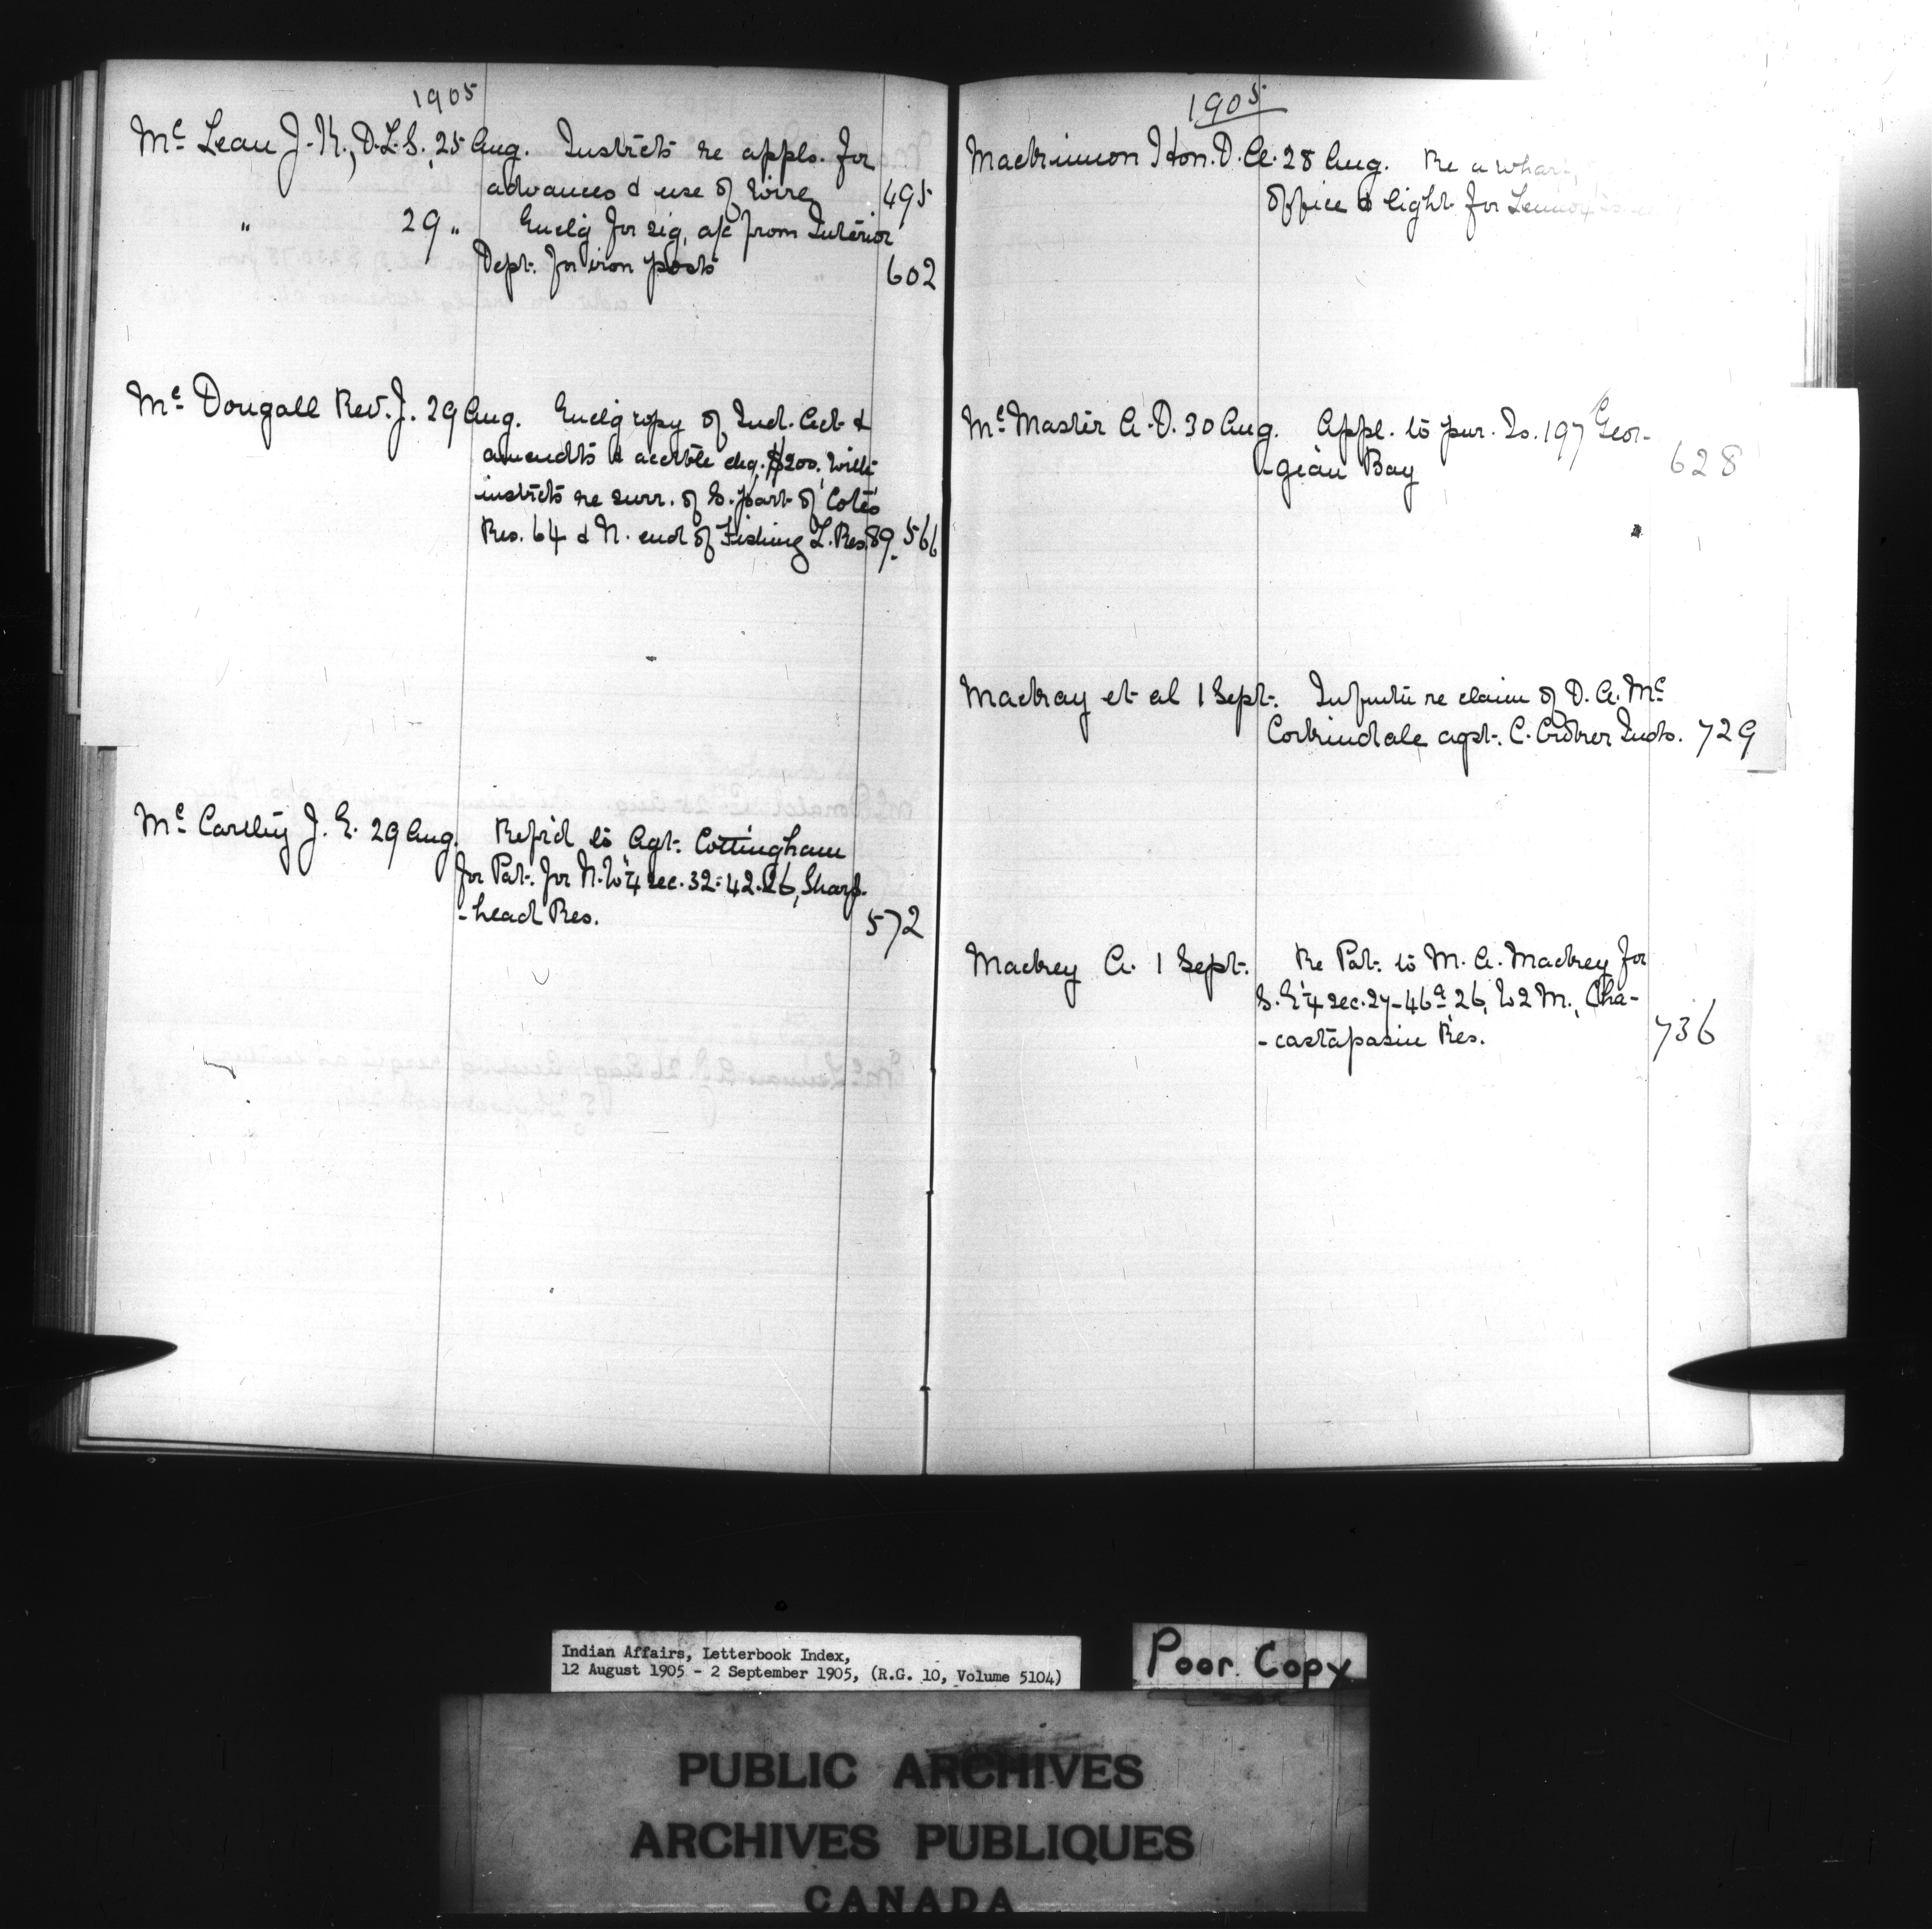 1905
Mc Lean J. K., D.L.S. 25 Aug. Instrcts re appls. for
advances & use of wire 495
" 29 " Enclg for sig, a/c from Interior
Dept. for iron posts 602
Mc Dougall Rev. J. 29 Aug. Enclg copy of Ind. Act &
amendts & accble chq. $200, with
instrcts re surr. of S. part of Cote's
Res. 64 & N. end of Fishing L. Res. 89. 566
Mc Carthy J. E. 29 Aug. Refrd to Agt. Cottingham
for Pat. for N.W ¼ sec. 32-42-26, Sharp-
-head Res. 572
1905
MacKinnon Hon. D. A. 28 Aug. Re a wharf,
office & light for Lennox Is
Mc Master A. D. 30 Aug. Appl. to pur. Is. 197 Geor-
-gian Bay 628
MacKay et al 1 Sept. re claim of D. A. Mc
Corkindale agst. C. Croker Inds. 729
MacKey A. 1 Sept. Re Pat. to M. A. MacKey for
S. E ¼ sec. 27-46a, 26, W 2 M., Cha-
-castapasin Res. 736
Indian Affairs, Letterbook Index,
12 August 1905 - 2 September 1905, (R.G. 10, Volume 5104)
Poor Copy
PUBLIC ARCHIVES
ARCHIVES PUBLIQUES
CANADA